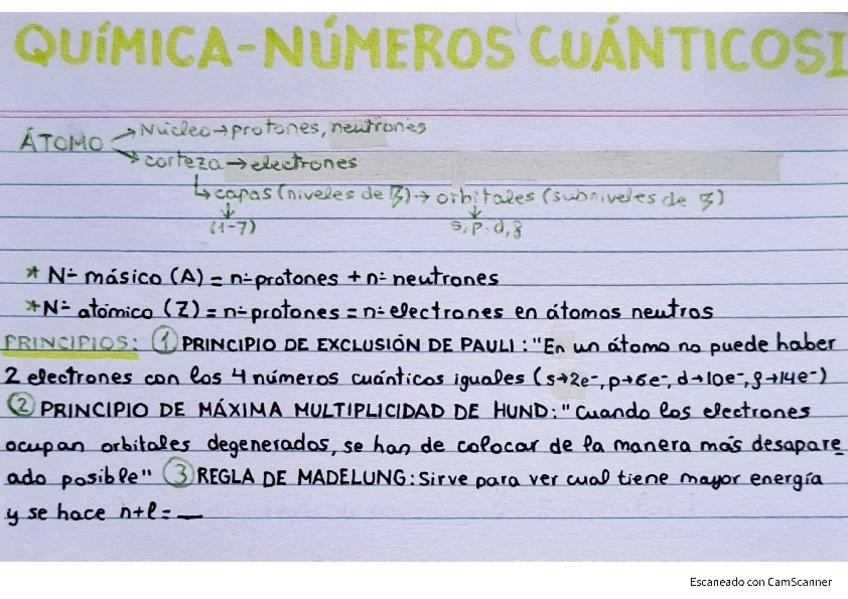 QUÍMICA-NÚMEROS CUÁNTICOS I
ÁTOMO → Núcleo → protones, neutrones
→ corteza → electrones
↳ capas (niveles de E) → orbitales (subniveles de E)
(1-7) s, p, d, f
* Nº másico (A) = nº protones + nº neutrones
* Nº atómico (Z) = nº protones = nº electrones en átomos neutros
PRINCIPIOS: ① PRINCIPIO DE EXCLUSIÓN DE PAULI: "En un átomo no puede haber
2 electrones con los 4 números cuánticos iguales (s→2e-, p→6e-, d→10e-, f→14e-)
② PRINCIPIO DE MÁXIMA MULTIPLICIDAD DE HUND: "Cuando los electrones
ocupan orbitales degenerados, se han de colocar de la manera más desapare
ado posible" ③ REGLA DE MADELUNG: Sirve para ver cual tiene mayor energía
y se hace n+l = __
Escaneado con CamScanner